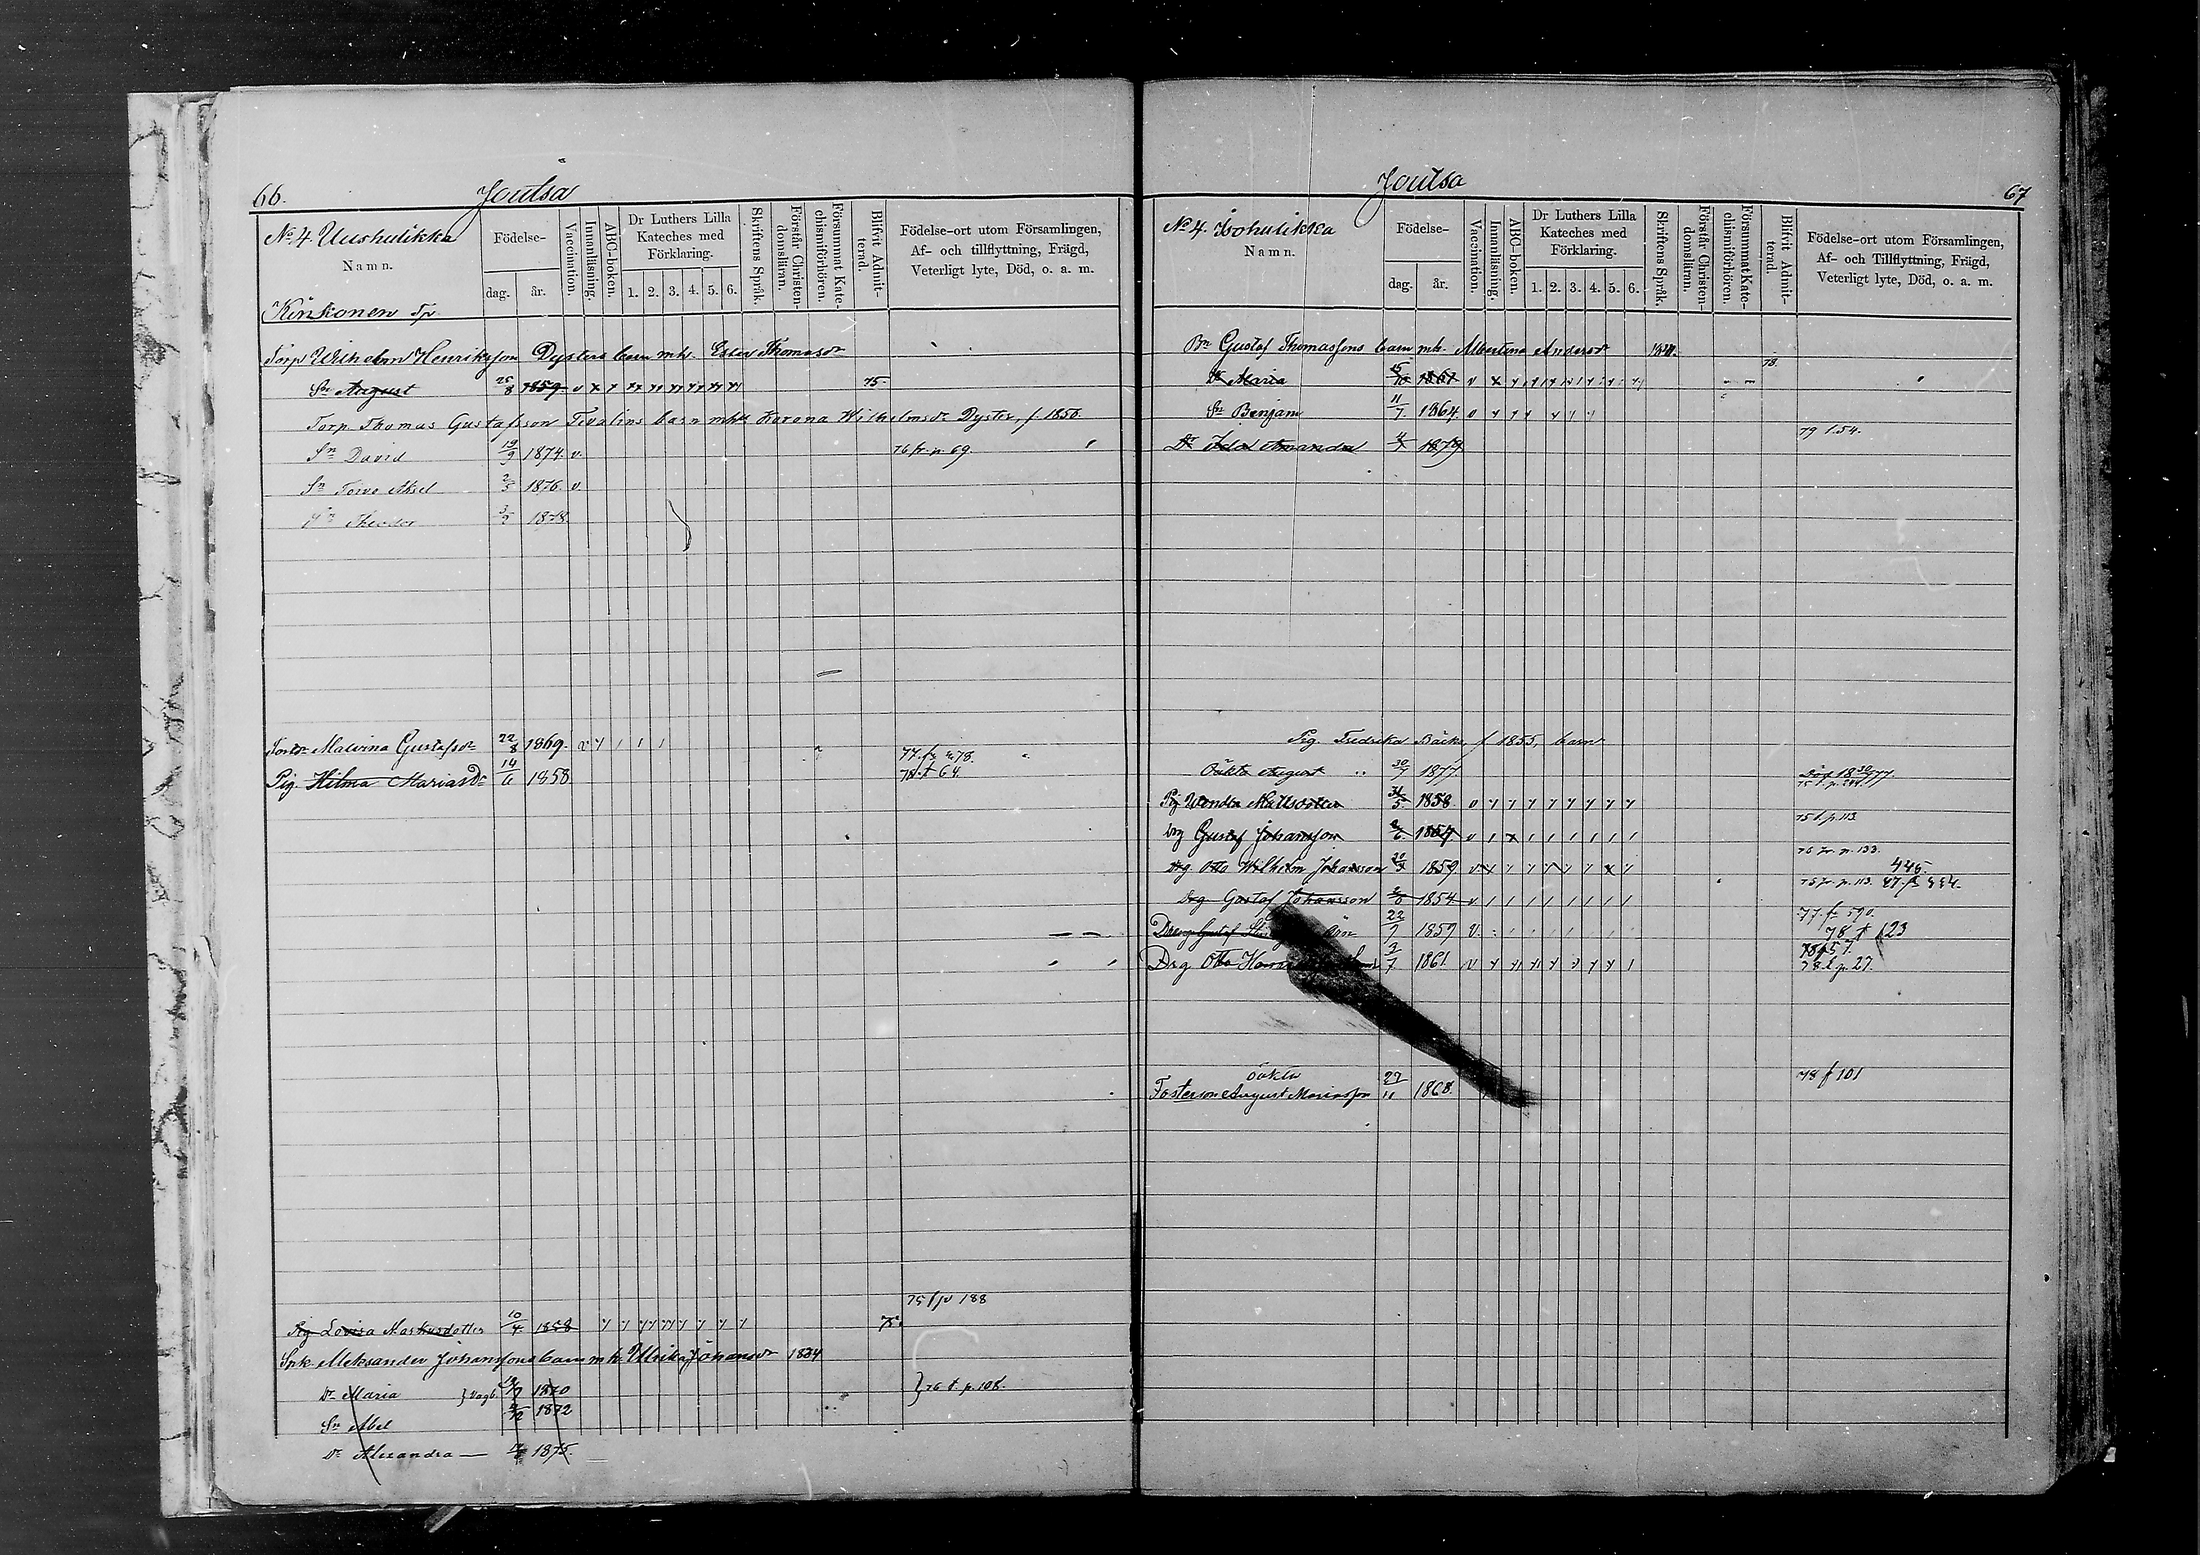 66.
Joutsa
No 4. Uushulikka
Namn.
Födelse-
dag.
år.
Vaccination.
Innanläsning.
ABC-boken.
Dr Luthers Lilla
Kateches med
Förklaring.
1. 2. 3. 4. 5. 6.
Skriftens Språk.
Förstår Christen-
domsläran.
Försummat Kate-
chismiförhören.
Blifvit Admit-
terad.
Födelse-ort utom Församlingen,
Af- och tillflyttning, Frägd,
Veterligt lyte, Död, o. a. m.
Torp Wilhelm Henriksson Dysters barn mh. Ester Thomasdr
Sn August 25/8 1859. v 75.
Torp. Thomas Gustafsson Tivalins barn mh Lovena Wilhelmsdr Dyster, f. 1850.
Sn David 19/9 1874. v. 76 fr. p. 69.
Sn Toivo Aksel 2/5 1876. v.
Sn Theodor 1878.
Malvina Gustafsdr 22/8 1869. v 77. fr. 478.
Pig. Hilma Mariasdr 14/6 1858 78. t 64.
75 f p 188
Pig Lovisa Markusdotter 10/4 1858 75.
Spk. Aleksander Johanssons barn mh. Ulrika Johansdr 1834
Dr Maria } Vagb. 1870 } 76 t. p. 108.
Sn Abel 1872
Dr Alexandra 1875.
Joutsa
67
No 4. Isohulikka
Namn.
Födelse-
dag.
år.
Vaccination.
Innanläsning.
ABC-boken.
Dr Luthers Lilla
Kateches med
Förklaring.
1. 2. 3. 4. 5. 6.
Skriftens Språk.
Förstår Christen-
domsläran.
Försummat Kate-
chismiförhören.
Blifvit Admit-
terad.
Födelse-ort utom Församlingen,
Af- och Tillflyttning, Frägd,
Veterligt lyte, Död, o. a. m.
Bn Gustaf Thomassons barn mh. Albertina Andersdr
Dr Maria 1861 v 78.
Sn Benjam 11/7 1864. v
79 t. 54.
Dr Ida Amanda 1879
Pig. Fredrika Bäck, f 1855, barn
Oäkta August 30/7 1877.
Pig Wendla Mattsdotter 31/5 1858 v
75 t. p. 113.
Drg Gustaf Johansson v
76 fr. p. 133.
Drg. Otto Wilhelm Johansson 1859 v 446.
75 fr. p. 113.
Drg Gustaf Johansson 1854 v
77. fr 590.
Dreng Gustaf 22/9 1859 V. 78 t 123
Drg Otto 2/7 1861. v 78 t. p. 27.
oäkta 78 f 101
Fosterson August Mariasson 27/11 1868.